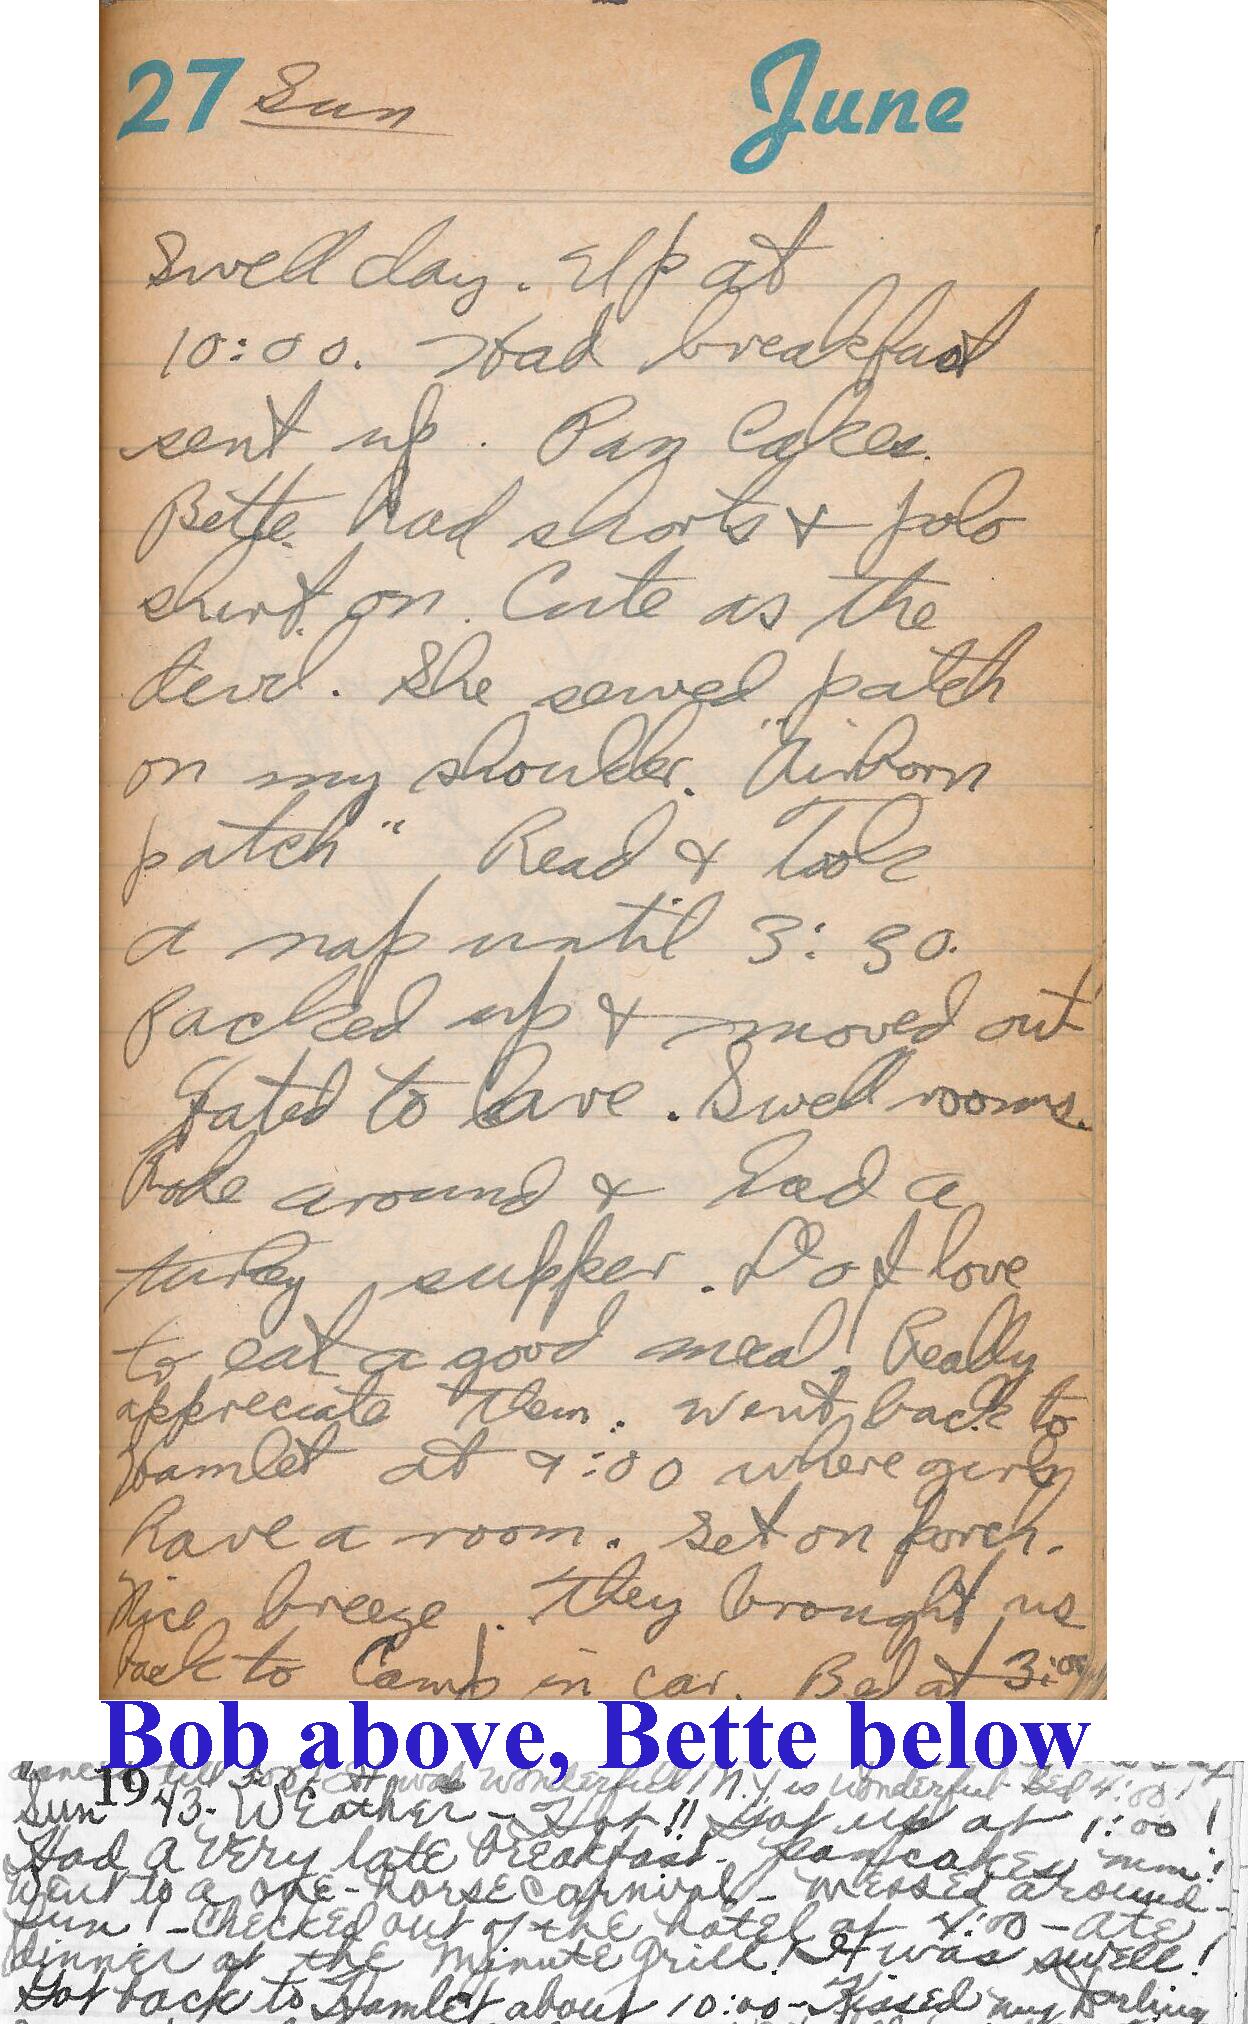 27 Sun June
Swell day. Up at
10:00. Had breakfast
sent up. Pan Cakes.
Bette had shorts & polo
shirt on. Cute as the
devil. She sewed patch
on my shoulder. "Airborn
patch" Read & Took
a nap until 3:30.
Packed up & moved out
Hated to leave. Swell rooms.
Rode around & had a
turkey supper. Do I love
to eat a good meal! Really
appreciate them. Went back to
Hamlet at 9:00 where girls
have a room. Set on porch.
Nice breeze. They brought us
back to Camp in car. Bed at 3:00
Bob above, Bette below
till 3:00! It was wonderful! N.Y. is wonderful - Bed 4:00!
19
Sun 43- Weather - Hot!! Got up at 1:00!
Had a very late breakfast - pancakes, mm!
Went to a one-horse carnival - messed around -
Fun! - Checked out of the hotel at 4:00 - Ate
dinner at the Minute Grill! It was swell!
Got back to Hamlet about 10:00 - Kissed my Darling